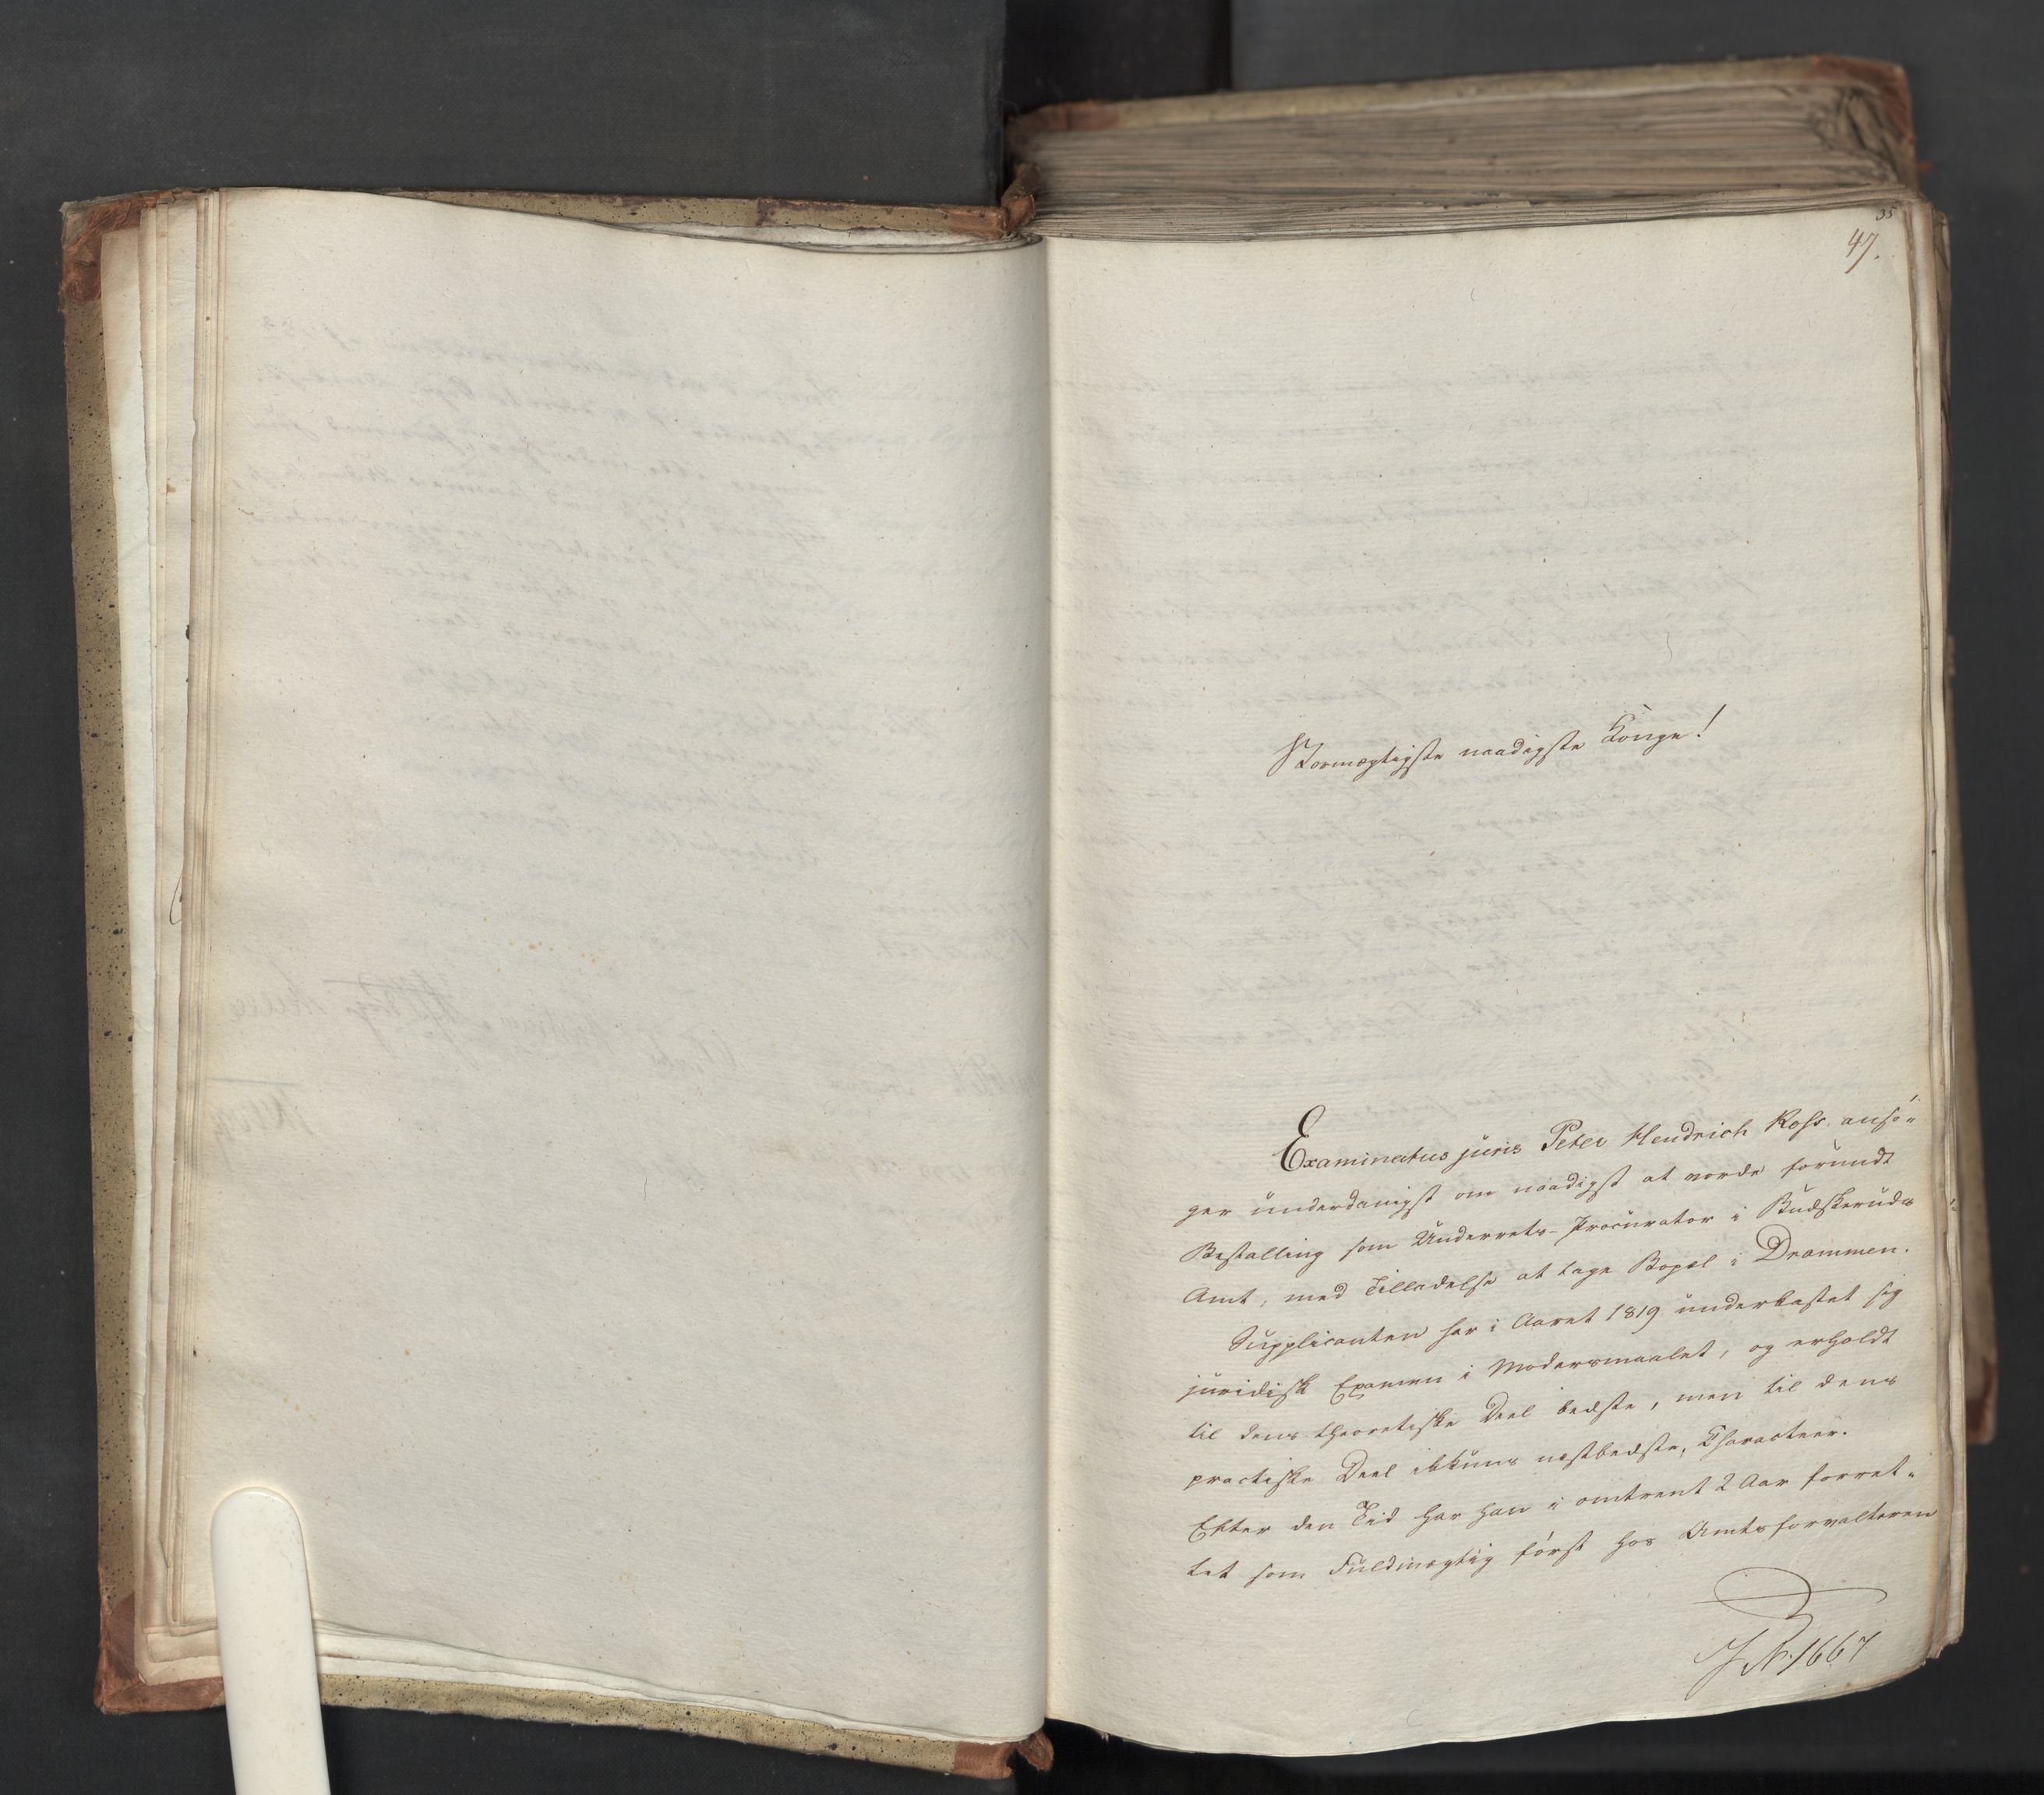 35
47.
Stormægtigste naadigste Konge!
Examinatus juris Peter Hendrich Ross ansø-
ger underdanigst om naadigst at vorde forundt
Bestalling som Underrets-Procurator i Budskeruds
Amt, med Tilladelse at tage Bopæl i Drammen.
Supplicanten har i Aaret 1819 underkastet sig
juridisk Examen i Modersmaalet, og erholdt
til dens theoretiske Deel bedste, men til dens
practiske Deel ikkuns næstbedste, Characteer.
Efter den Tid har han i omtrent 2 Aar forret-
tet som Fuldmægtig først hos Amtsforvalteren
J. N. 1667